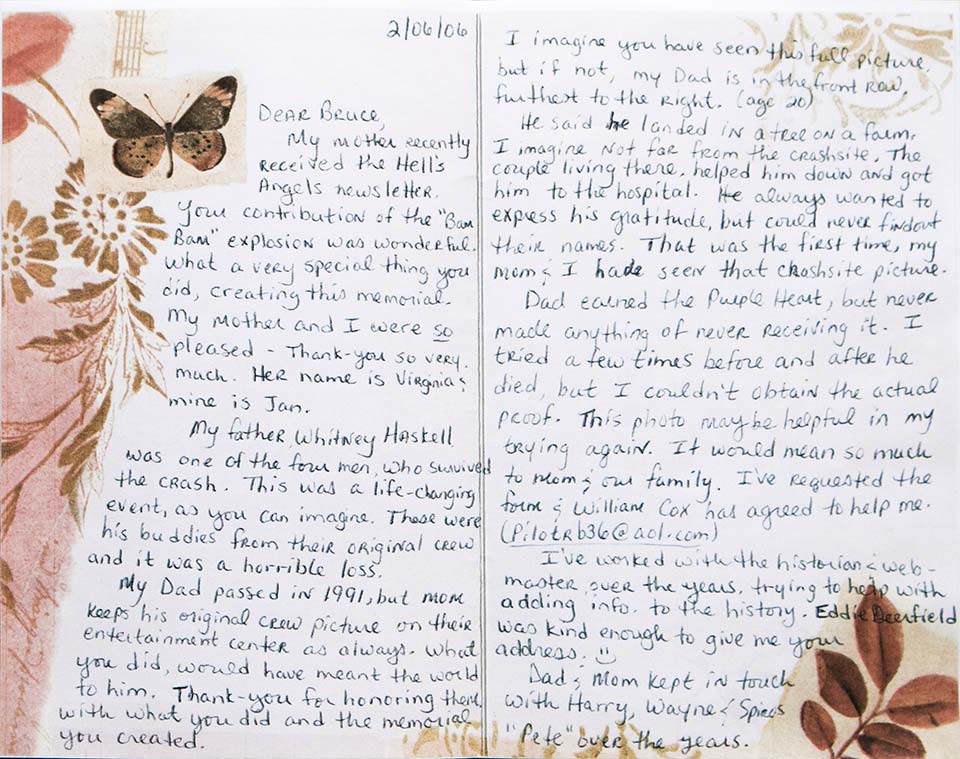 2/06/06
Dear Bruce,
My mother recently
received the Hell's
Angels newsletter.
Your contribution of the "Bam
Bam" explosion was wonderful.
What a very special thing you
did, creating this memorial.
My mother and I were so
pleased - Thank-you so very
much. Her name is Virginia &
mine is Jan.
My father, Whitney Haskell
was one of the four men, who survived
the crash. This was a life-changing
event, as you can imagine. These were
his buddies from their original crew
and it was a horrible loss.
My Dad passed in 1991, but mom
keeps his original crew picture on their
entertainment center as always. What
you did, would have meant the world
to him. Thank-you for honoring them
with what you did and the memorial
you created.
I imagine you have seen this full picture,
but if not, my Dad is in the front row,
furthest to the right. (age 20)
He said he landed in a tree on a farm,
I imagine not far from the crashsite. The
couple living there, helped him down and got
him to the hospital. He always wanted to
express his gratitude, but could never findout
their names. That was the first time, my
mom & I had seen that crashsite picture.
Dad earned the Purple Heart, but never
made anything of never receiving it. I
tried a few times before and after he
died, but I couldn't obtain the actual
proof. This photo may be helpful in my
trying again. It would mean so much
to mom & our family. I've requested the
form & William Cox has agreed to help me.
(Pilotrb36@aol.com)
I've worked with the historian & web-
master over the years, trying to help with
adding info. to the history. Eddie Deerfield
was kind enough to give me your
address. ☺
Dad & Mom kept in touch
with Harry, Wayne &
"Pete" over the years.